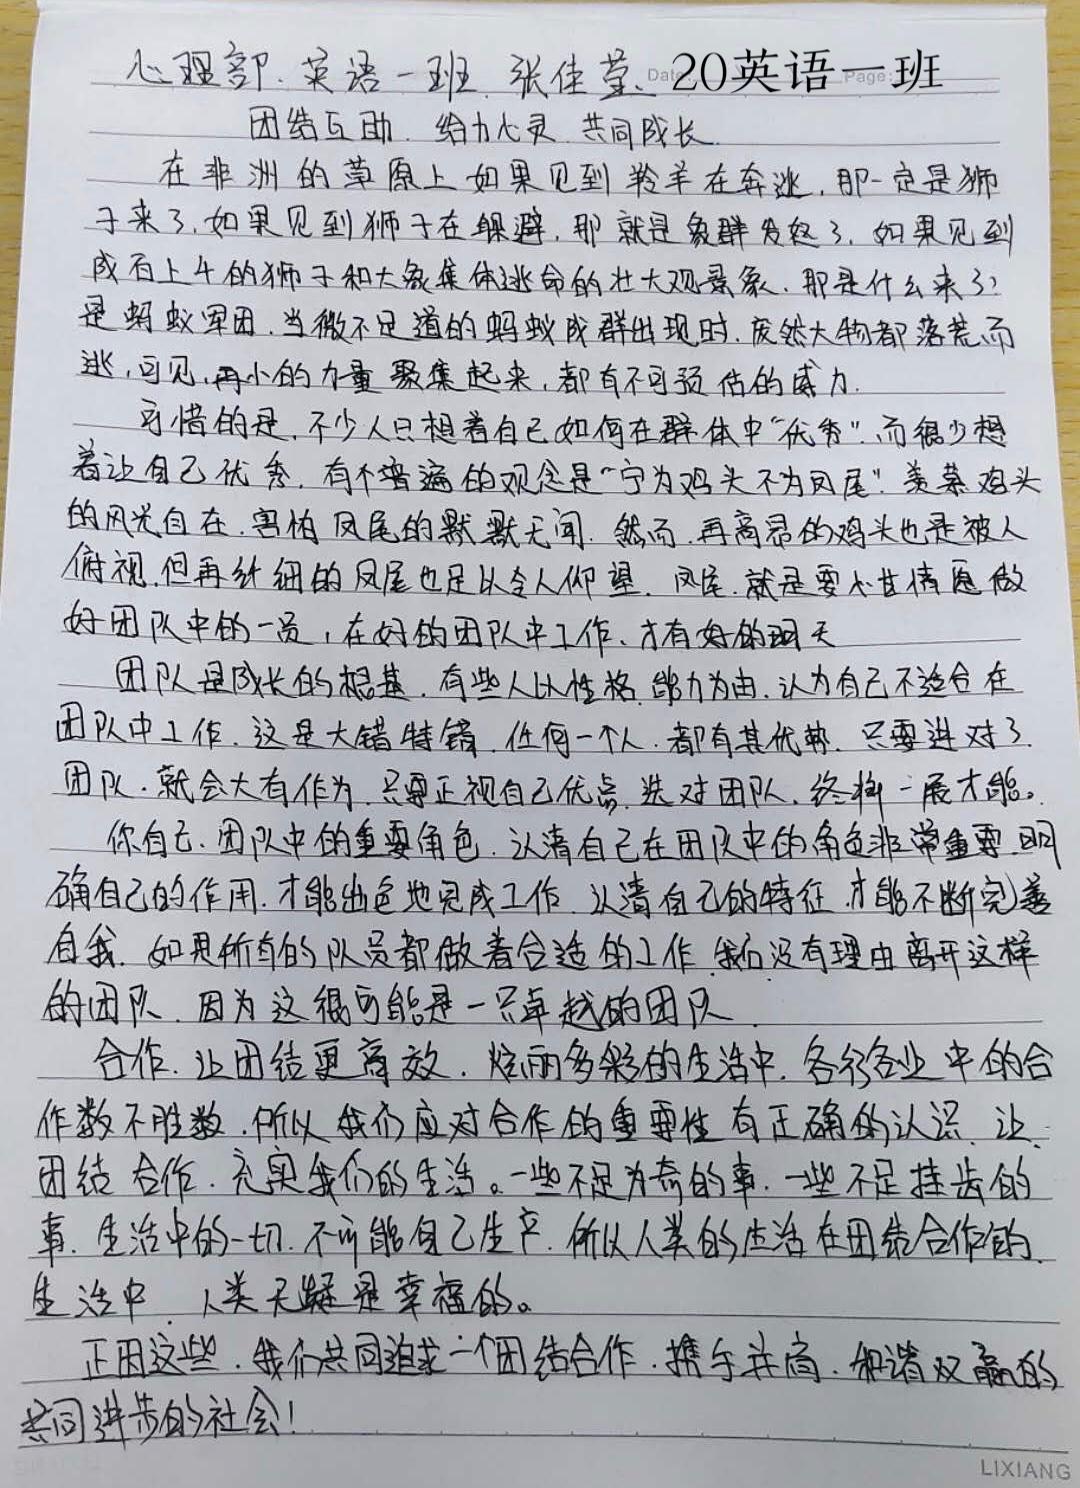 心理部、英语一班、张佳莹、 Date: Page: 20英语一班
团结互助、给力心灵、共同成长
在非洲的草原上如果见到羚羊在奔逃,那一定是狮
子来了,如果见到狮子在躲避,那就是象群发怒了,如果见到
成百上千的狮子和大象集体逃命的壮大观景象,那是什么来了?
是蚂蚁军团,当微不足道的蚂蚁成群出现时,庞然大物都落荒而
逃,可见,再小的力量聚集起来,都有不可预估的威力.
可惜的是,不少人只想着自己如何在群体中“优秀”,而很少想
着让自己优秀,有个普遍的观念是“宁为鸡头不为凤尾”.羡慕鸡头
的风光自在,害怕凤尾的默默无闻.然而,再高昂的鸡头也是被人
俯视,但再纤细的凤尾也足以令人仰望.凤尾,就是要心甘情愿做
好团队中的一员,在好的团队中工作、才有好的明天
团队是成长的根基.有些人以性格、能力为由,认为自己不适合在
团队中工作.这是大错特错.任何一个人.都有其优势.只要进对了
团队,就会大有作为.只要正视自己优点,选对团队,终将一展才能。
你自己,团队中的重要角色.认清自己在团队中的角色非常重要,明
确自己的作用,才能出色地完成工作.认清自己的特征,才能不断完善
自我.如果所有的队员都做着合适的工作,我们没有理由离开这样
的团队.因为这很可能是一只卓越的团队.
合作,让团结更高效.炫丽多彩的生活中,各行各业中的合
作数不胜数,所以我们应对合作的重要性有正确的认识,让
团结合作,充实我们的生活。一些不足为奇的事,一些不足挂齿的
事.生活中的一切,不可能自己生产,所以人类的生活在团结合作的
生活中,人类无疑是幸福的。
正因这些,我们共同追求一个团结合作、携手并肩,和谐双赢的
共同进步的社会!
LIXIANG